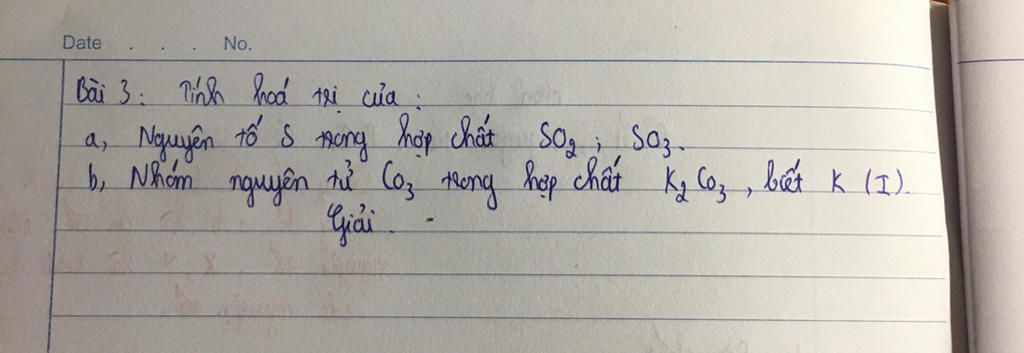 Date . . . No.
Bài 3: Tính hoá trị của:
a, Nguyên tố S trong hợp chất SO₂; SO₃.
b, Nhóm nguyên tử CO₃ trong hợp chất K₂CO₃, biết K (I).
Giải.